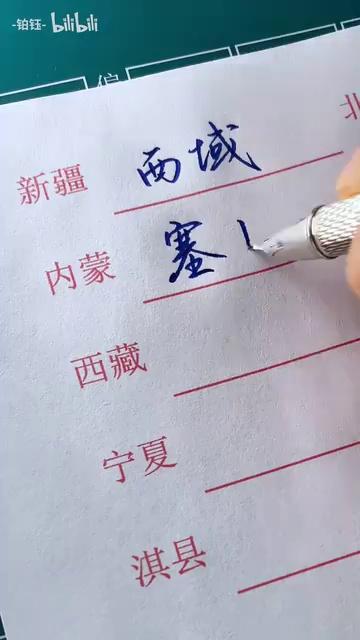 -铂钰- bilibili
北
新疆 西域
内蒙 塞
西藏
宁夏
淇县